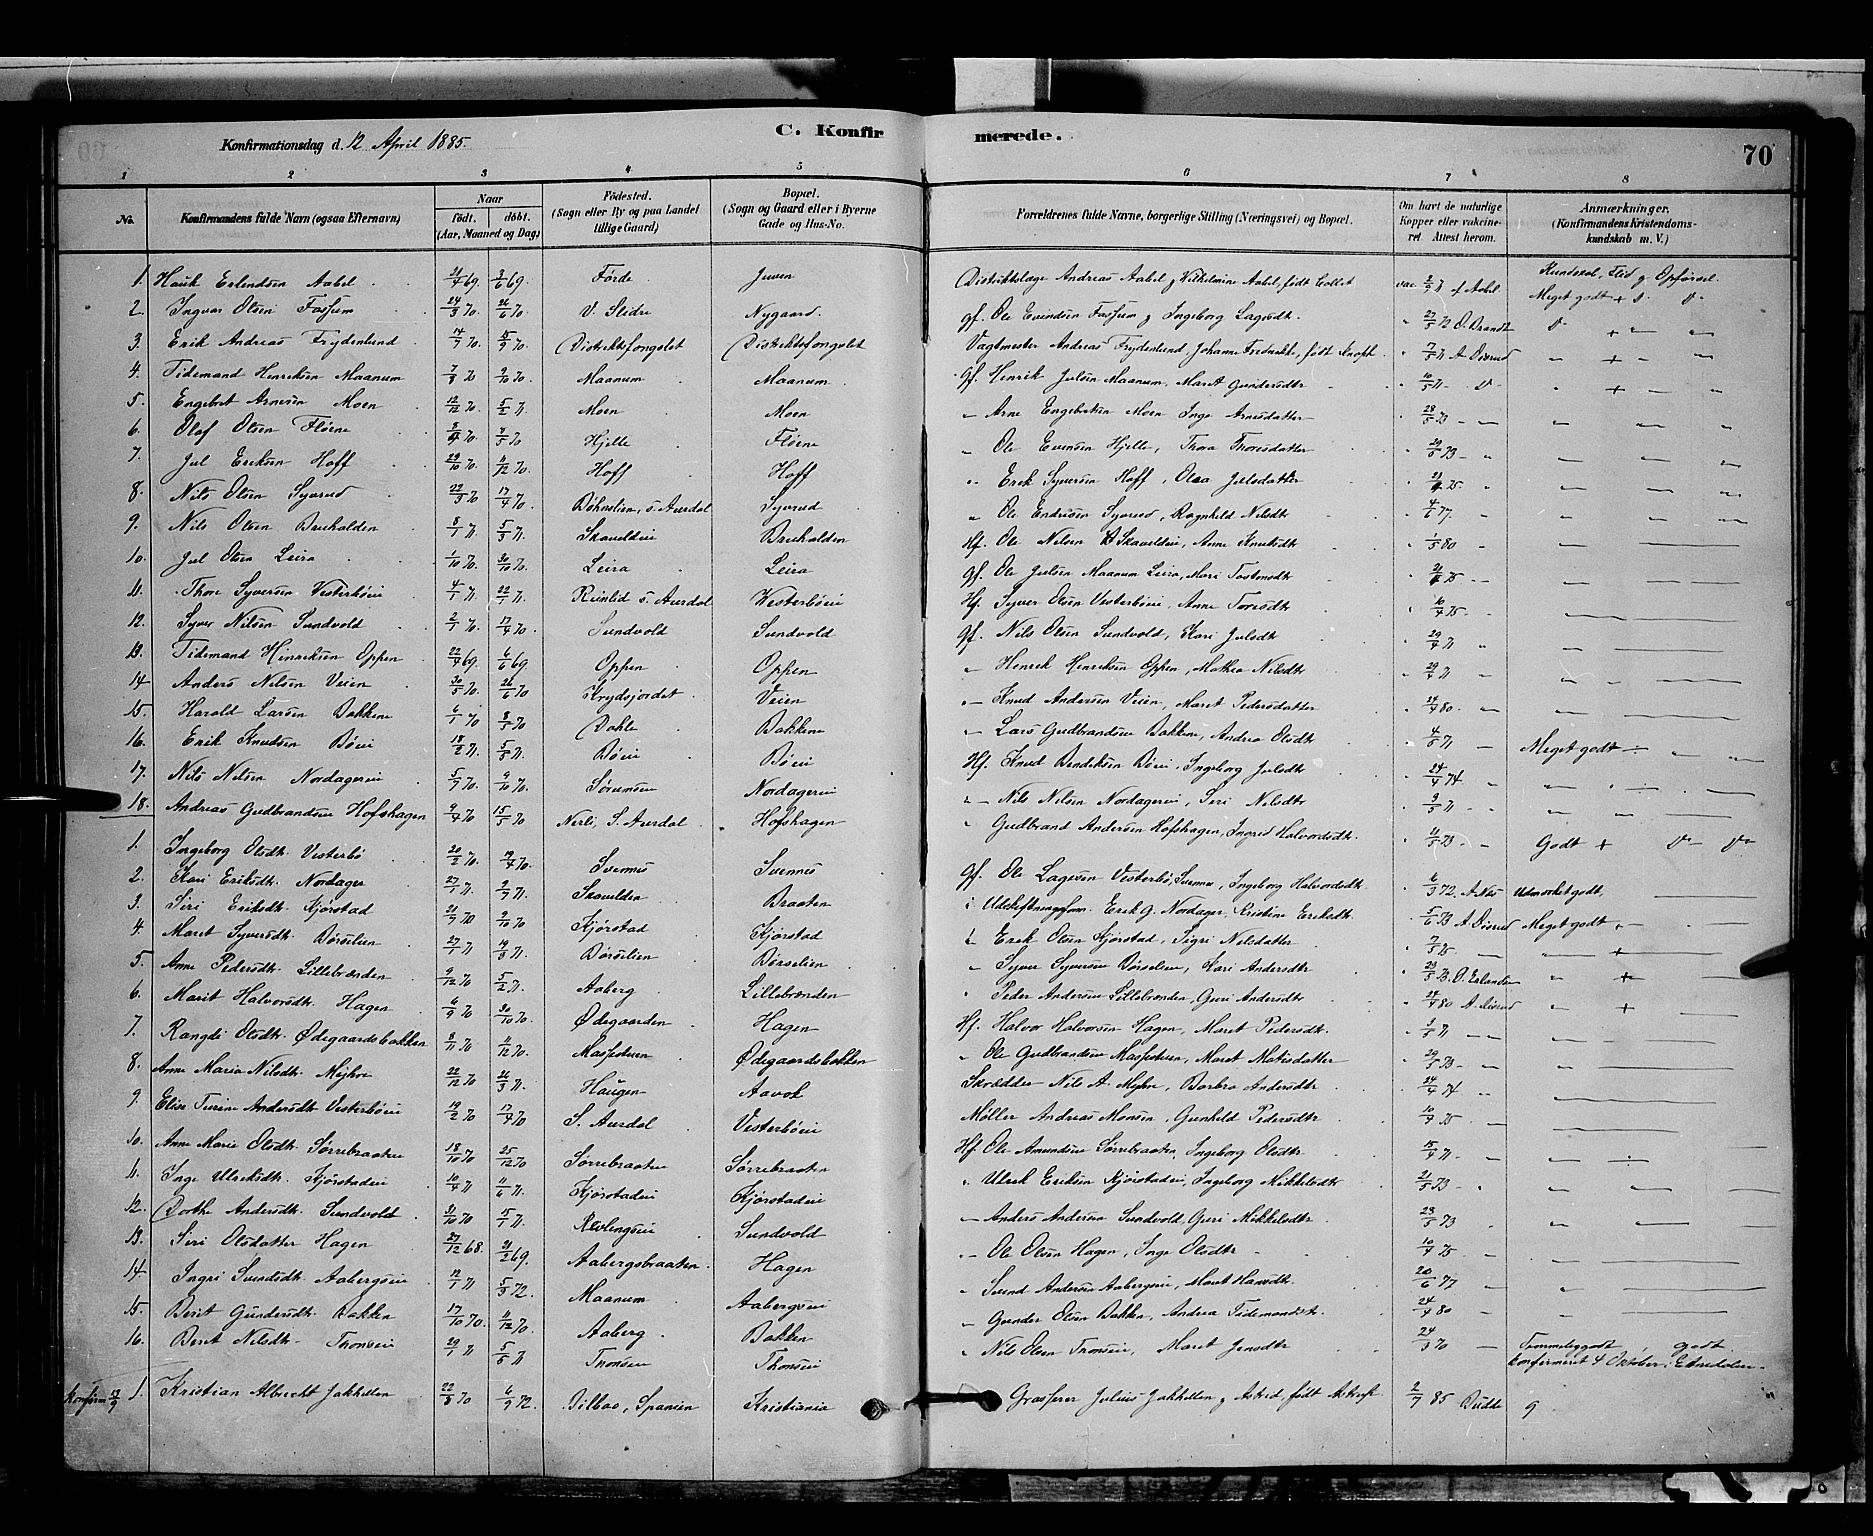 Konfirmationsdag d. 12 April 1885.
C. Konfirmerede.
70
1 2 3 4 5 6 7 8
No.
Konfirmandens fulde Navn (ogsaa Efternavn)
Naar
født. døbt.
(Aar, Maaned og Dag)
Fødested.
(Sogn eller By og paa Landet tillige Gaard)
Bopæl.
(Sogn og Gaard eller i Byerne Gade og Hus-No.
Forældrenes fulde Navne, borgerlige Stilling (Næringsvei) og Bopæl.
Om havt de naturlige Kopper eller vakcineret Attest herom.
Anmærkninger.
(Konfirmandens Kristendomskundskab m. V.)
Kundskab, Flid og Opførsel.
1. Hauk Erlendsen Aabel 69. 69. Førde Juven Distriktslæge Andreas Aabel & Wilhelmine Aabel, født Collet vac. Aabel Meget godt
2. Ingvar Olsen Fossum 24/3 70. 26/6 70 V. Slidre Nygaard gf. Ole Evindsen Fossum & Ingeborg Lagesdt. 72 O. Brandt
3. Erik Andreas Frydenlund 14/7 70. 15/9 70. Distriktsfængslet Distriktsfængslet Vagtmester Andreas Frydenlund, Johanne født Knoph 71 A. Disrud
4. Tidemand Henriksen Maanum 70 2/10 70. Maanum Maanum Gf. Henrik Julsen Maanum, Marit Gundersdtr 10/5 71
5. Engebret Arnesen Moen 12/12 70. 5/2 71. Moen Moen Arne Engebretsen Moen Inge Arnesdatter 28/5 73
6. Olaf Olsen Fløene 70. 70 Hjelle Fløene Ole Evensen Hjelle, Thora Thoresdatter 73
7. Jul Eriksen Hoff 29/10 70. 11/12 70. Hoff Hoff Erik Syversen Hoff, Olea Julsdatter 75
8. Nils Olsen Syverud 22/3 70 17/4 70. Bøhnslien, S. Aurdal Syverud Ole Endresen Syverud, Ragnhild Nilsdt 4/6 77.
9. Nils Olsen Bruholden 8/1 71. 5/3 71. Skavelden Bruholden Hf. Ole Nilsen Skaveldeie, Anne Knutsdt 1/5 80
10. Jul Olsen Leira 1/10 70. 30/10 70. Leira Leira gf. Ole Julsen Maanum Leira, Mari Tostensdt 75
11. Thore Syversen Vesterbøeie 4/1 71. 22/1 71. Reinlid S. Aurdal Westerbøeie Hf. Syver Olsen Vesterbøeie, Anne Toresdt 10/4 75
12. Syver Nilsen Sundvold 2/1 70. 17/4 70. Sundvold Sundvold gf. Nils Olsen Sundvold, Kari Julsdt 29/4 71
13. Tidemand Hinriksen Oppen 22/4 69. 6/6 69 Oppen Oppen Henrik Henriksen Oppen, Mathea Nilsdt 71
14 Anders Nilsen Veien 30/5 70. 26/6 70 Krydsjordet Veien Knud Andersen Veien, Marit Pedersdatter 24/4 80
15. Harald Larsen Bakkene 6/1 70 8/5 70 Dahle Bakkene Lars Gudbrandsen Bakken, Andrea Olsdt 4/5 71 Meget godt
16. Erik Knudsen Bøeie 18/2 71. 5/3 71. Bøeie Bøeie Hf. Knud Bendiksen Bøeie, Ingeborg Julsdt 24/4 74
17. Nils Nilsen Nordagereie 5/7 70. 9/10 70. Sørumseie Nordagereie Nils Nilsen Nordagereie, Siri Nilsdtr 9/5 71
18. Andreas Gudbrandsen Hofshagen 9/4 70 15/5 70 Nerli, S. Aurdal Hofshagen Gudbrand Andersen Hofshagen, Ingrid Halvorsdt. 11/5 73 Godt
1. Ingeborg Olsdt. Vesterbø 20/2 70. 19/4 70. Svennes Svennes gf. Ole Lagesen Vesterbø, Svennes, Ingeborg Halvorsdt. 6/3 72. A. Næs Udmærket godt,
2. Kari Eriksdt. Nordager 27/1 71. 71. Skavelden Braaten Udskiftningsform. Erik G. Nordager, Kristine Eriksdt. 5/6 73 A. Disrud Meget godt
3. Siri Eriksdt. Kjørstad 21/9 70 2/10 70 Kjørstad Kjørstad Erik Olsen Kjørstad, Sigri Nilsdatter 75
4. Marit Syversdt. Børselien 27/1 71 19/3 71. Børselien Børselien Syver Syversen Børselien, Kari Andersdtr 73. O. Erlandsen
5. Anne Pedersdt. Lillebrænden 9/12 70 5/2 71. Aaberg Lillebrænden Peder Andersen Lillebrænden, Guri Andersdtr 24/4 80 A. Disrud
6. Marit Halvorsdt. Hagen 6/9 70 30/10 70. Ødegaarden Hagen Hf. Halvor Halvorsen Hagen, Marit Pedersdt. 71
7. Rangdi Olsdt. Ødegaardsbakken 8/11 70 11/12 70. Masstuen Ødegaardsbakken Ole Gudbrandsen Masstuen, Marit Matisdatter 29/5 73
8. Anne Maria Nilsdt. Myhre 22/12 70 26/3 71. Haugen Aavok Skrædder Nils A. Myhre, Barbro Andersdtr 24/4 74
9. Elise Turine Andersdt. Vesterbøeie 19/2 70 17/4 70 S. Aurdal Vesterbøeie Møller Andreas Monsen, Gunhild Pedersdtr 10/4 75
10. Anne Marie Olsdt. Sørrebraaten 18/10 70 25/12 70 Sørrebraaten Sørrebraaten Hf. Ole Amundsen Sørrebraaten, Ingeborg Olsdtr 15/4 71
11. Inge Ulriksdt. Kjørstadeie 10/4 71 11/6 71. Kjørstadeie Kjørstadeie Ulrik Eriksen Kjørstadeie, Ingeborg Mikkelsdtr 21/5 73
12. Dorthe Andersdt. Sundvold 31/10 70 5/1 71. Revlingseie Sundvold Anders Andersen Sundvold, Guri Mikkelsdtr 23/5 73
13. Siri Olsdatter Hagen 27/12 68. 21/2 69. Aabergsbraaten Hagen Ole Olsen Hagen, Inge Olsdtr 10/4 75
14 Ingri Svendsdt. Aabergseie 12/1 71 5/3 72. Maanum Aabergseie Svend Andersen Aabergseie, Marit Hansdt. 20/6 77
15. Berit Gundersdt. Bakken 17/10 70. 11/12 70 Aaberg Bakken Gunder Olsen Bakken, Andrea Tidemandsdt. 24/4 80
16. Berit Nilsdt. Thonseie 29/1 71 5/5 71 Tronseie Thonseie Nils Olsen Tronseie, Marit Jensdtr 24/3 70 Temmelig godt godt.
konfirmeret 4 Oktober i Etnedalen
Konfirm. 1. Kristian Albrecht Jakhellen 22/8 70 6/9 72. Bilbao, Spanien Kristiania Grosserer Julius Jakhellen & Astrid født 2/7 85 Budde